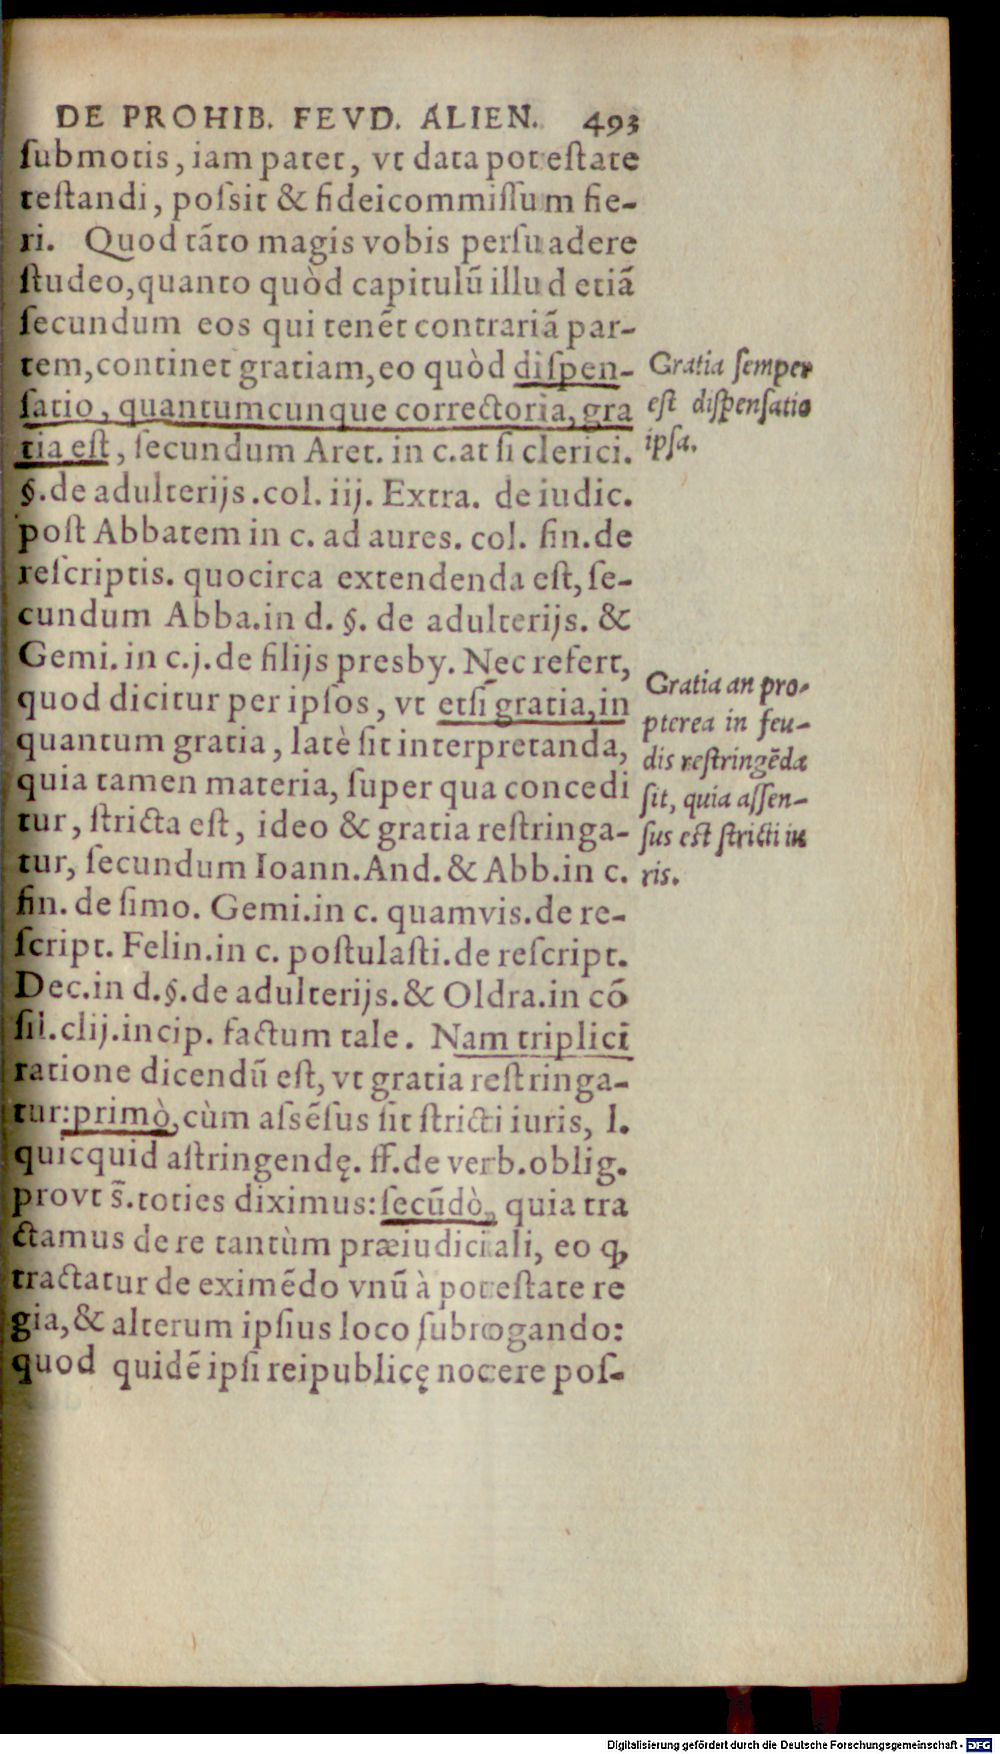 DE PROHIB. FEVD. ALIEN. 493
ſubmotis, iam patet, vt data poteſtate
teſtandi, poſsit & fideicommiſſum fie-
ri. Quod tāto magis vobis perſuadere
ſtudeo, quanto quòd capitulū illud etiā
ſecundum eos qui tenēt contrariā par-
tem, continet gratiam, eo quòd diſpen-
ſatio, quantumcunque correctoria, gra
tia eſt, ſecundum Aret. in c. at ſi clerici.
§. de adulterijs. col. iij. Extra. de iudic.
poſt Abbatem in c. ad aures. col. fin. de
reſcriptis. quocirca extendenda eſt, ſe-
cundum Abba. in d. §. de adulterijs. &
Gemi. in c. j. de filijs presby. Nec refert,
quod dicitur per ipſos, vt etſi gratia, in
quantum gratia, latè ſit interpretanda,
quia tamen materia, ſuper qua concedi
tur, ſtricta eſt, ideo & gratia reſtringa-
tur, ſecundum Ioann. And. & Abb. in c.
fin. de ſimo. Gemi. in c. quamvis. de re-
ſcript. Felin. in c. poſtulaſti. de reſcript.
Dec. in d. §. de adulterijs. & Oldra. in cō
ſil. clij. incip. factum tale. Nam triplici
ratione dicendū eſt, vt gratia reſtringa-
tur: primò, cùm aſsēſus ſit ſtricti iuris, l.
quicquid aſtringendę. ff. de verb. oblig.
provt s̄. toties diximus: ſecūdò, quia tra
ctamus de re tantùm præiudiciali, eo ꝙ
tractatur de eximēdo vnū à poteſtate re
gia, & alterum ipſius loco ſubrogando:
quod quidē ipſi reipublicę nocere poſ-
Gratia ſemper
eſt diſpenſatio
ipſa.
Gratia an pro-
pterea in feu-
dis reſtringēda
ſit, quia aſſen-
ſus eſt ſtricti iu
ris.
Digitalisierung gefördert durch die Deutsche Forschungsgemeinschaft - DFG